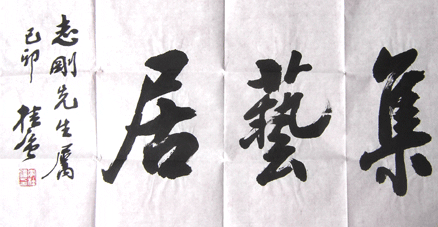 集藝居
志剛先生屬
己卯 桂